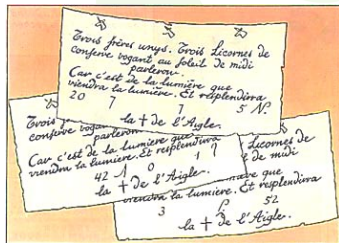 Trois frères unys. Trois Licornes de
conserve vogant au soleil de midi
parleron.
Car c'est de la lumière que
viendra la lumière. Et resplendira
20 7 7 5 N.
la + de l'Aigle.
Trois
conserve
parleron
Car c'est de la lumière que
viendra la lumière. Et resplendira
42 0 1
la + de l'Aigle.
Licornes de
de midi
que
viendra la lumière. Et resplendira
3 52
la + de l'Aigle.